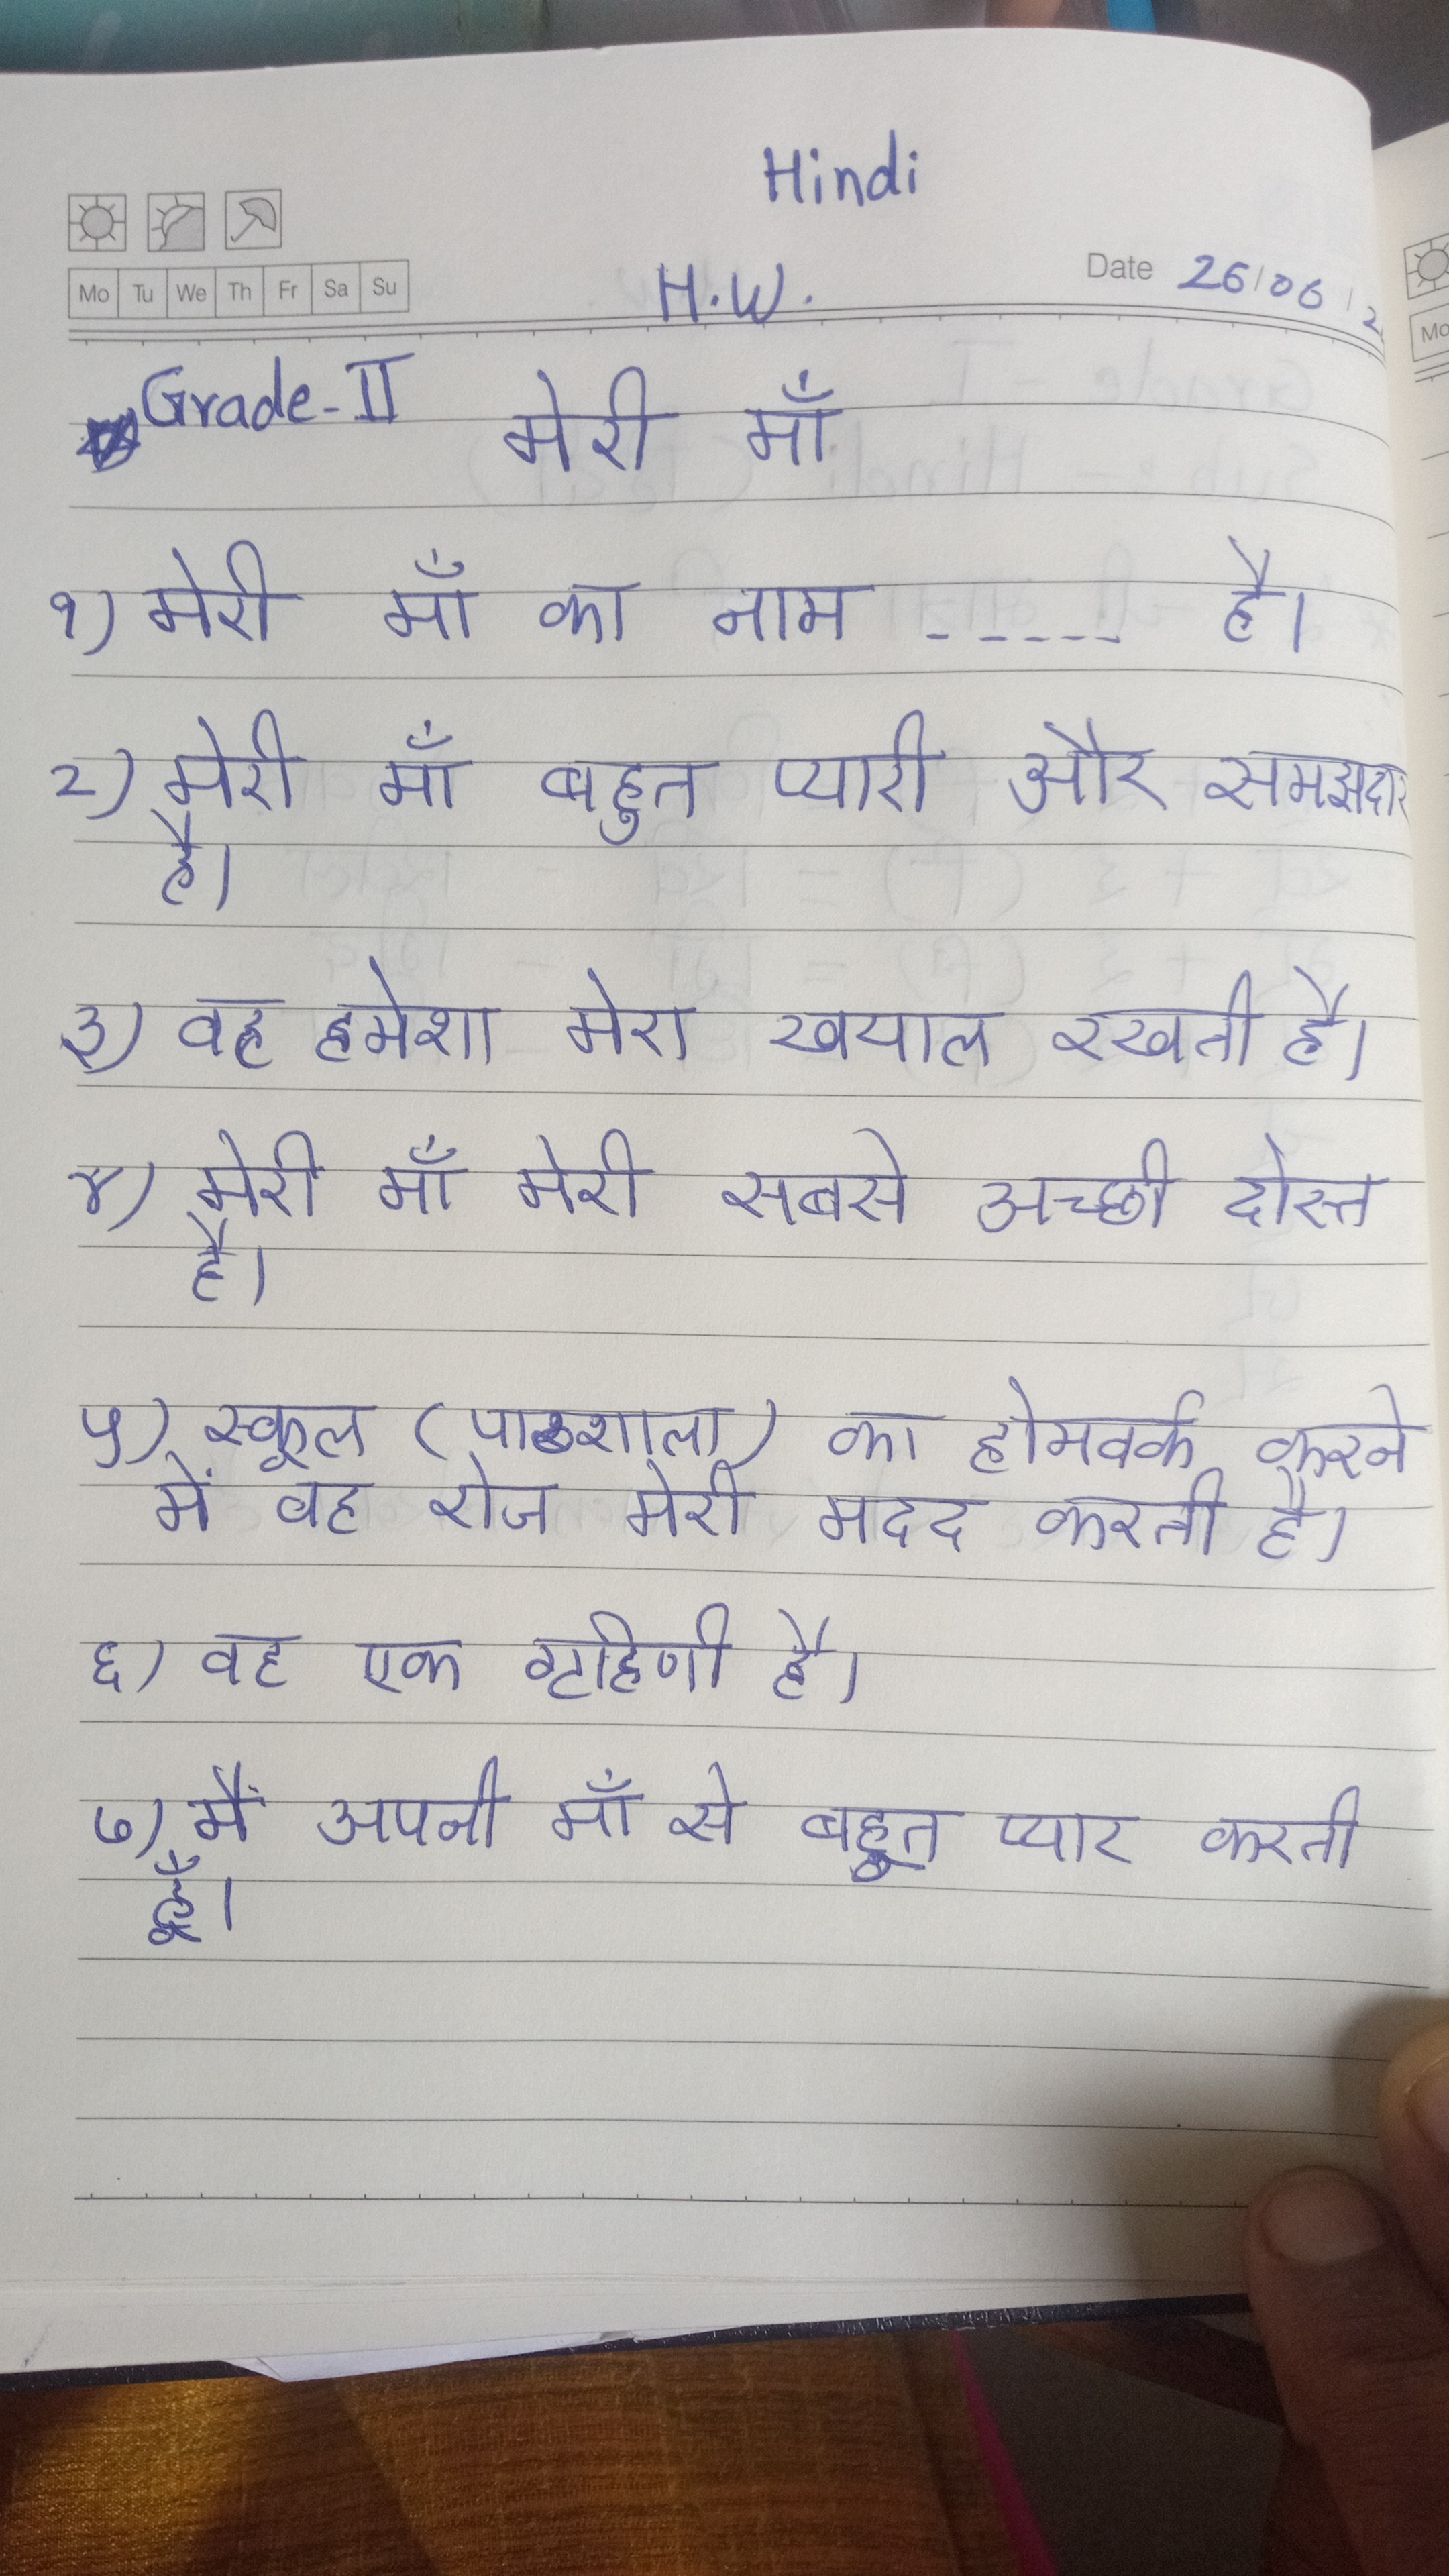 Hindi
Mo Tu We Th Fr Sa Su
H.W.
Date 26/06/2
Grade-II
मेरी माँ
१) मेरी माँ का नाम ------ है।
२) मेरी माँ बहुत प्यारी और समझदार
है।
३) वह हमेशा मेरा खयाल रखती है।
४) मेरी माँ मेरी सबसे अच्छी दोस्त
है।
५) स्कूल (पाठशाला) का होमवर्क करने
में वह रोज मेरी मदद करती है।
६) वह एक गृहिणी है।
७) मैं अपनी माँ से बहुत प्यार करती
हूँ।
Mo